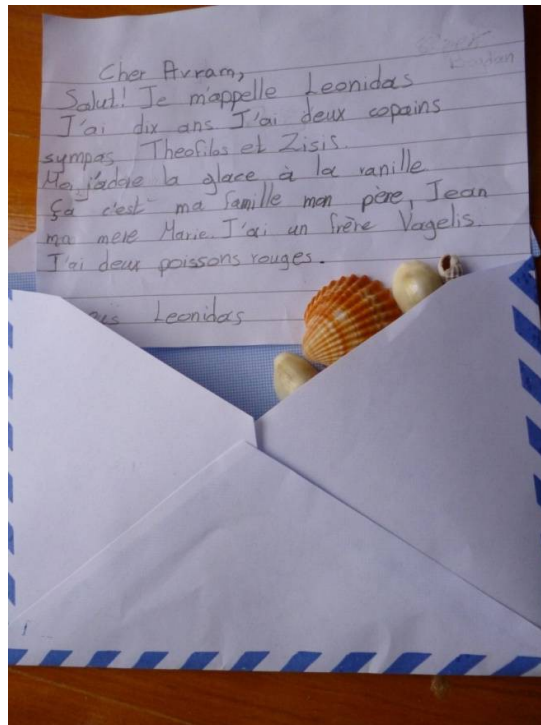 Cher Avram,
Salut! Je m'appelle Leonidas
J'ai dix ans J'ai deux copains
sympas Theofilos et Zisis.
j'adore la glace à la vanille
Ça c'est ma famille mon père, Jean
ma mere Marie. J'ai un frère Vagelis.
J'ai deux poissons rouges.
Leonidas